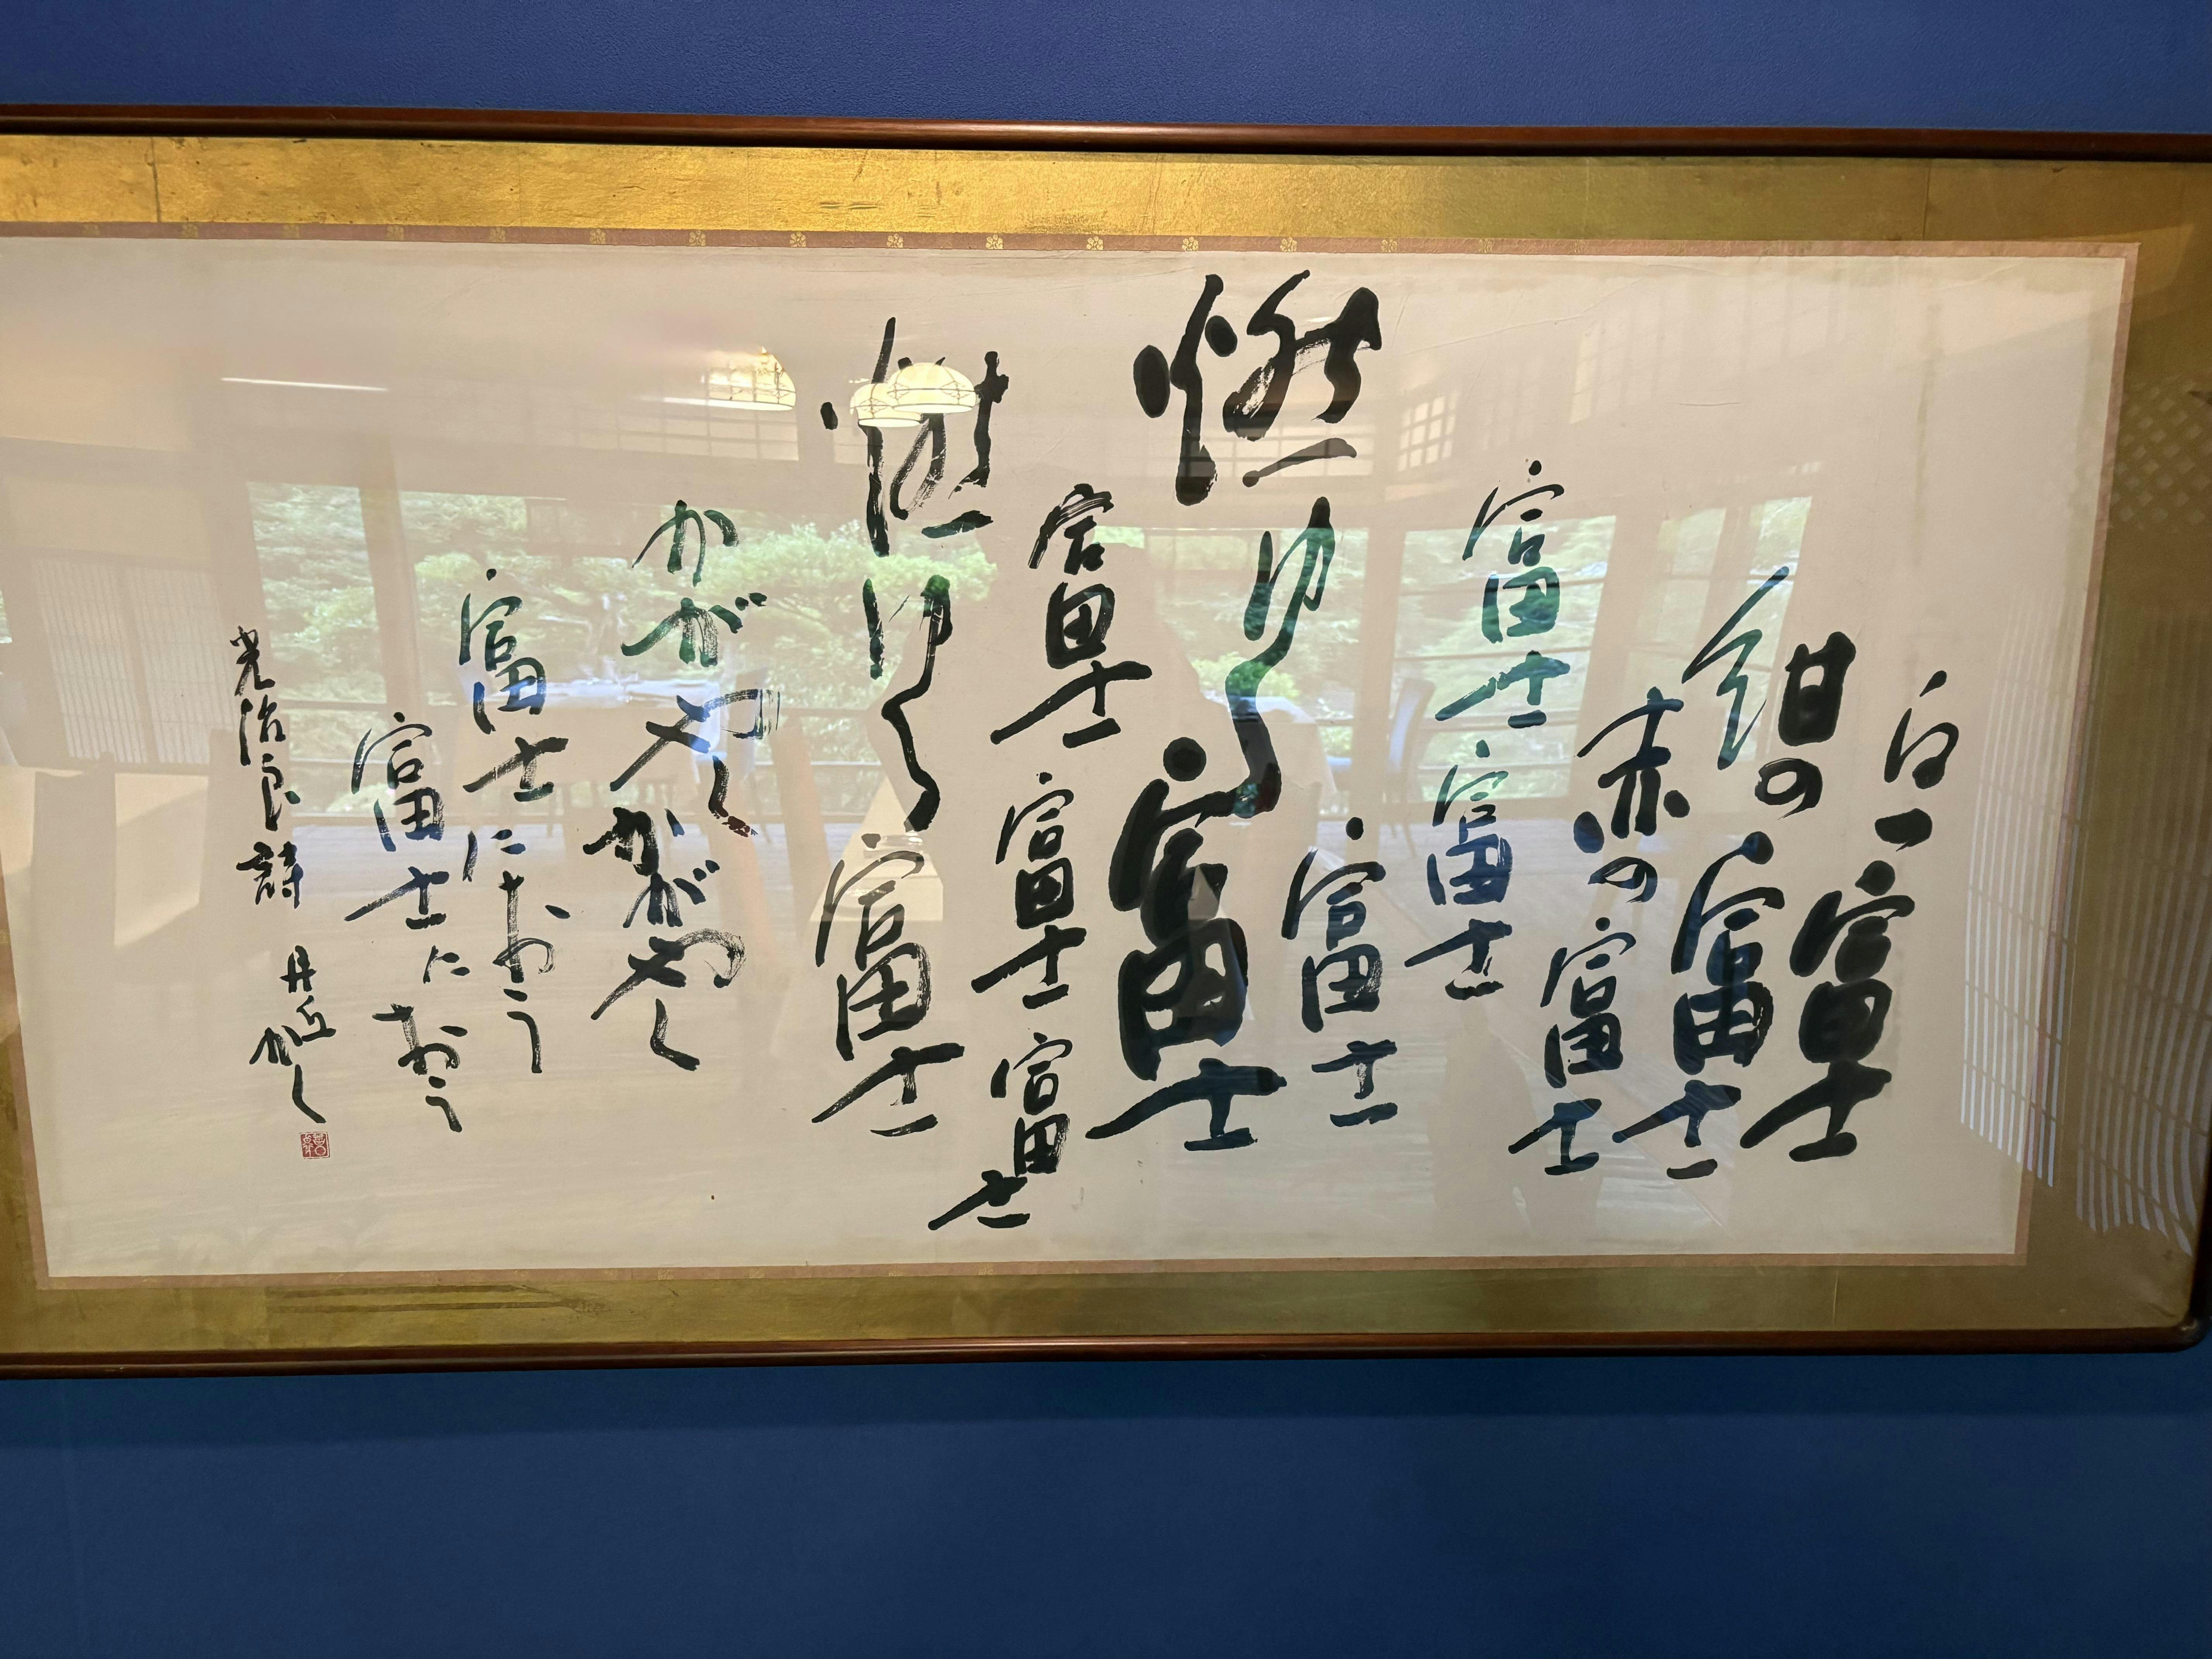 白富士
紺の富士
赤の富士
富士富士
富士
燃ゆる富士
富士富士富士
燃ゆる富士
かがやくかがやく
富士にあおう
富士にあおう
光治良詩
丹丘かく